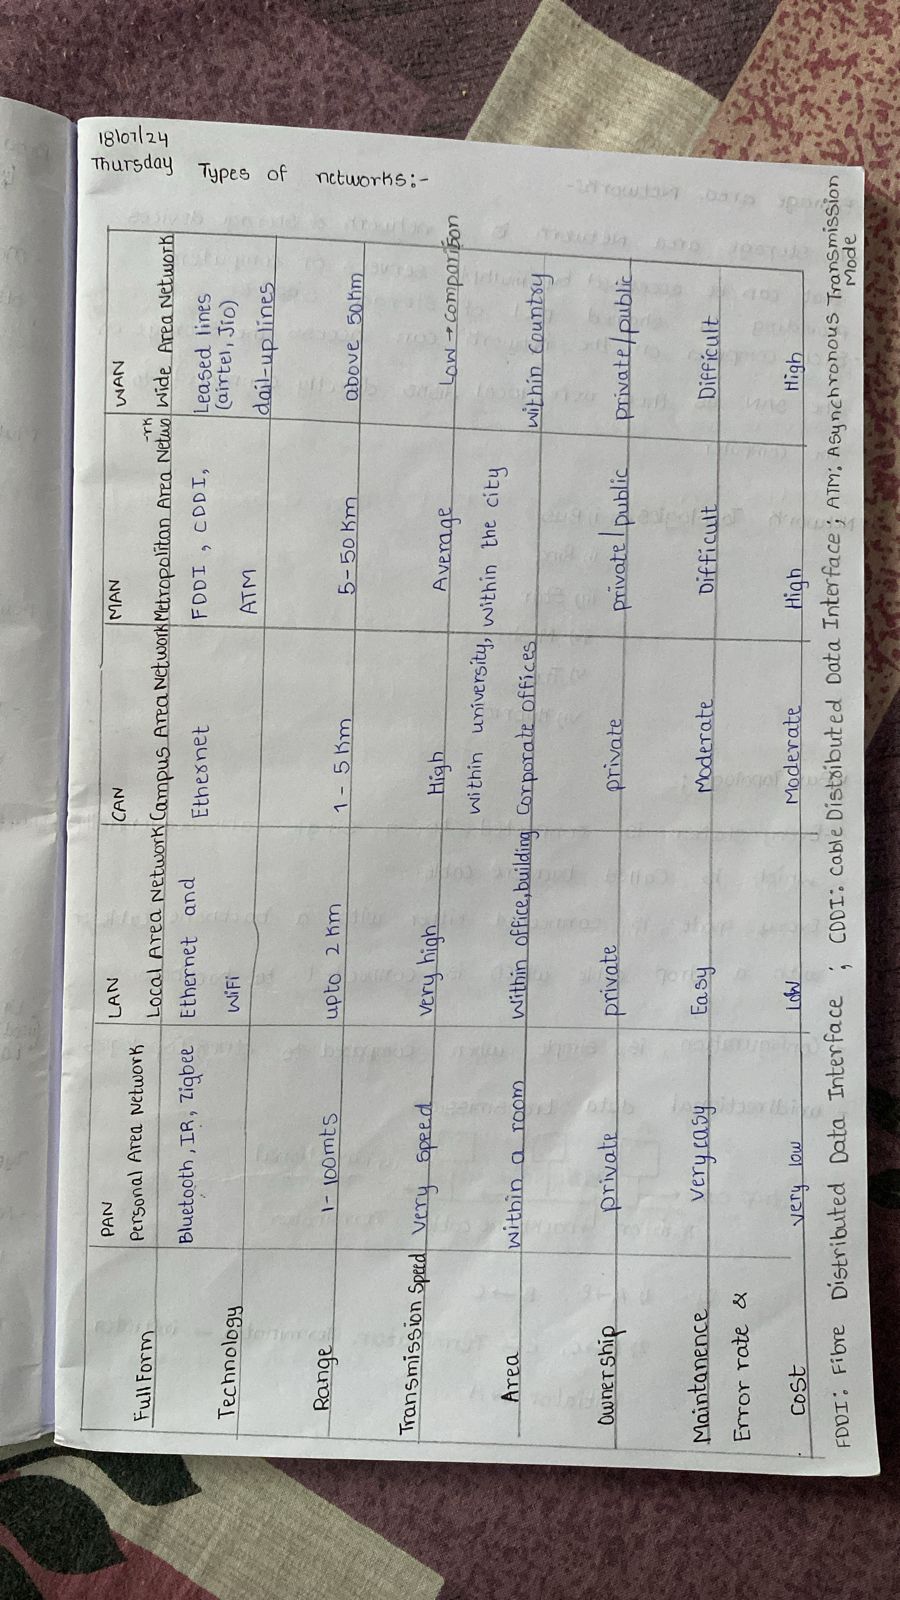 18/07/24
Thursday Types of networks:-
PAN LAN CAN MAN WAN
Full Form Personal Area Network Local Area Network Campus Area Network Metropolitan Area Netwo-rk Wide Area Network
Technology Bluetooth, IR, Zigbee Ethernet and WiFi Ethernet FDDI, CDDI, ATM Leased lines (airtel, Jio) dail-up lines
Range 1-100mts upto 2 Km 1-5 Km 5-50 Km above 50Km
Transmission Speed very speed very high High Average Low → comparison
Area within a room within office, building within university, corporate offices within the city within country
Ownership private private private private/public private/public
Maintanence very easy Easy Moderate Difficult Difficult
Error rate & cost very low Low Moderate High High
FDDI: Fibre Distributed Data Interface ; CDDI: Cable Distributed Data Interface ; ATM: Asynchronous Transmission
Mode